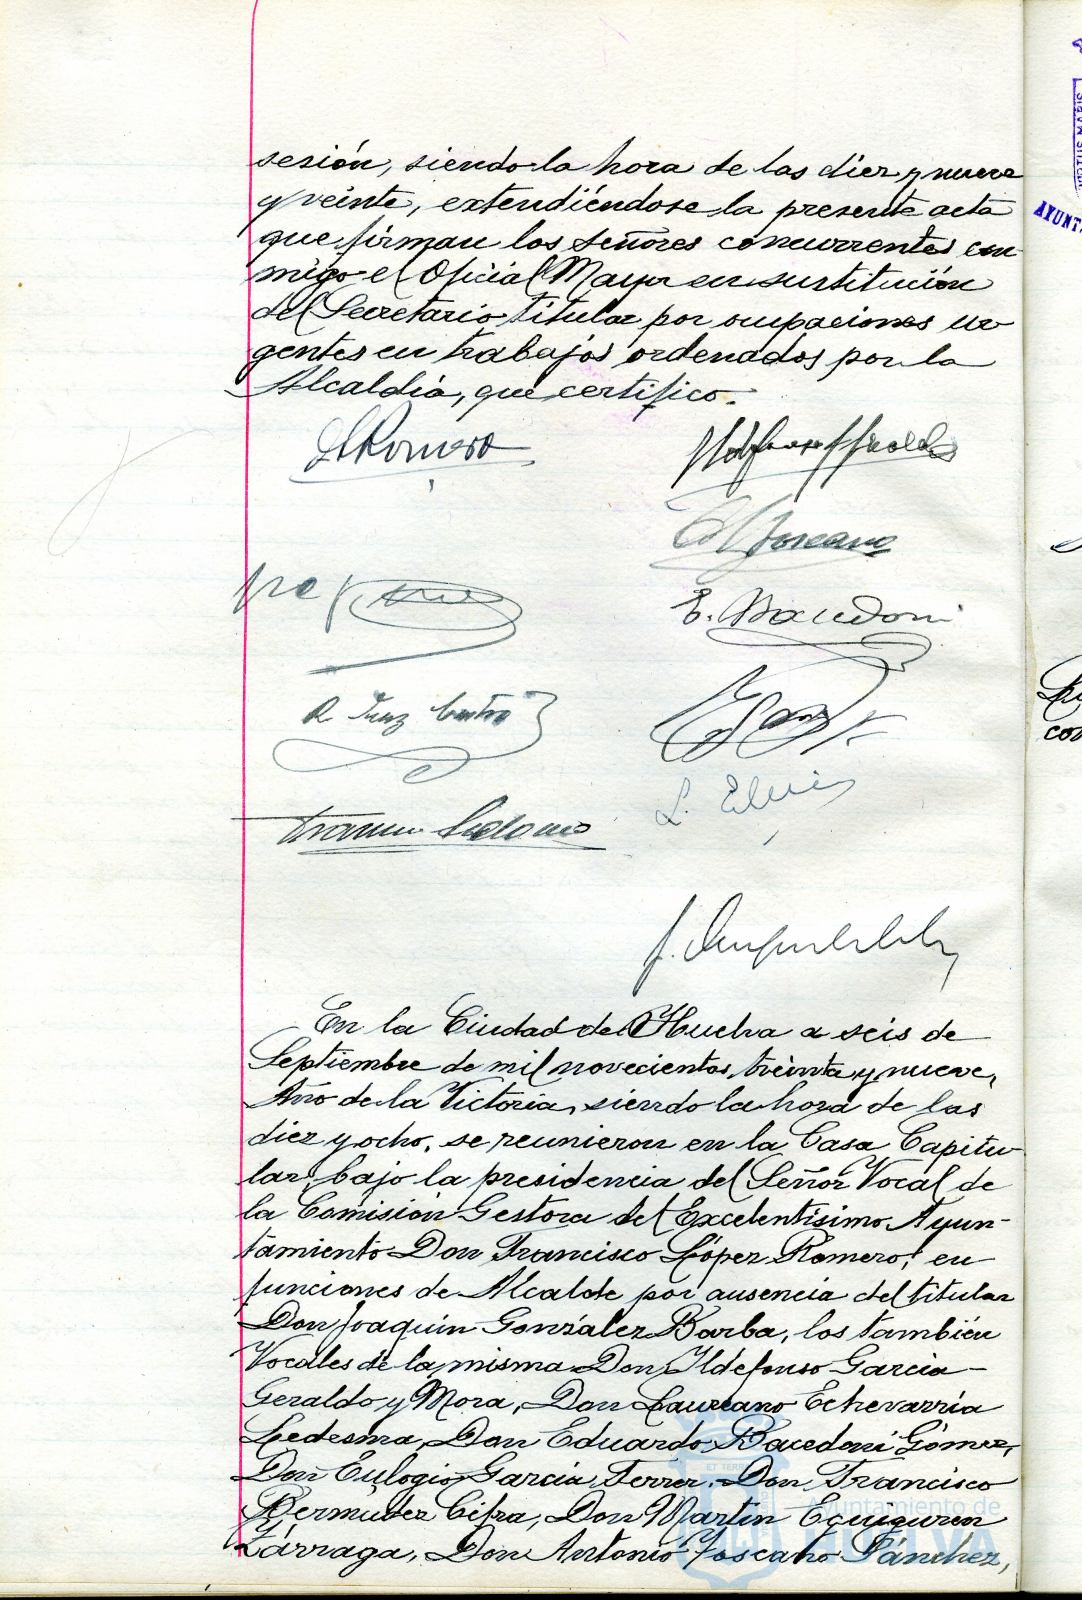 sesión, siendo la hora de las diez y nueve
y veinte, extendiéndose la presente acta
que firman los señores concurrentes con
migo el Oficial Mayor en sustitución
del Secretario titular por ocupaciones ur
gentes en trabajos ordenados por la
Alcaldía, que certifico.
Romero
Toscano
E. Bacedoni
En la Ciudad de Huelva a seis de
Septiembre de mil novecientos treinta y nueve,
Año de la Victoria, siendo la hora de las
diez y ocho, se reunieron en la Casa Capitu
lar, bajo la presidencia del Señor Vocal de
la Comisión Gestora del Excelentísimo Ayun-
tamiento Don Francisco López Romero, en
funciones de Alcalde por ausencia del titular
Don Joaquín González Barba, los también
Vocales de la misma Don Ildefonso García
Geraldo y Mora, Don Laureano Echevarría
Ledesma, Don Eduardo Bacedoni Gómez,
Don Eulogio García Ferrer, Don Francisco
Bermudez Cifra, Don Martín Eguiguren
Lárraga, Don Antonio Toscano Sánchez,
Ayuntamiento de
HUELVA
AYUNT
con